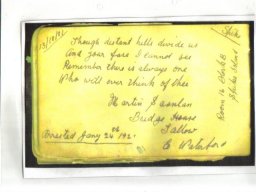 13/10/21
Though distant hills divide us
And your face I cannot see
Remember there is always one
Who will ever think of thee
Martin Scanlan
Bridge House
Tallow
Co Waterford
Arrested Jany 24th 1921
Room 16 Block B
Spike Island